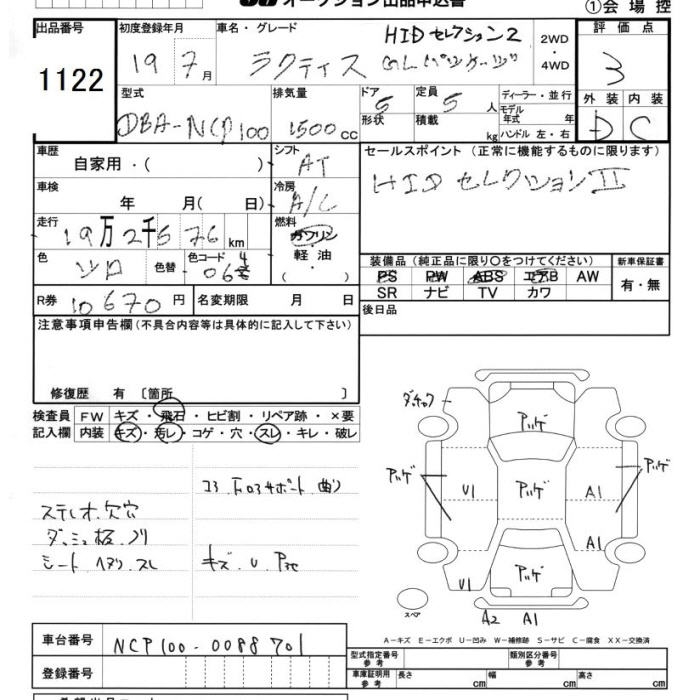 オークション出品申込書
①会場控
出品番号
1122
初度登録年月
19 7月
車名・グレード
HIDセレクション2
ラクティス GLパッケージ
2WD
・
4WD
評価点
3
型式
DBA-NCP100
排気量
1500cc
ドア
5
形状
定員
5人
積載
kg
ディーラー・並行
モデル
年式 年
ハンドル 左・右
外装 内装
D C
車歴
自家用・( )
シフト
AT
セールスポイント(正常に機能するものに限ります)
HIDセレクションII
車検
年 月( 日)
冷房
A/C
走行
19万2千576km
燃料
ガソリン
・
軽油
・
色
シロ
色替
色コード
064
装備品(純正品に限り○をつけてください)
PS PW ABS エアB AW
SR ナビ TV カワ
新車保証書
有・無
R券
10670円
名変期限 月 日
後日品
注意事項申告欄(不具合内容等は具体的に記入して下さい)
修復歴 有 〔箇所 〕
検査員
記入欄
FW キズ・飛石・ヒビ割・リペア跡・×要
内装 キズ・汚レ・コゲ・穴・スレ・キレ・破レ
コアサポート 曲り
ステレオ欠穴
シート ヘタリ スレ
キズ・U
アハゲ
アハゲ
アハゲ
アハゲ
アハゲ
U1
A1
A1
U1
A2 A1
スペア
A-キズ E-エクボ U-凹み W-補修跡 S-サビ C-腐食 XX-交換済
車台番号
NCP100-0088701
登録番号
型式指定番号
参考
類別区分番号
参考
車庫証明用
参考
長さ cm
幅 cm
高さ cm